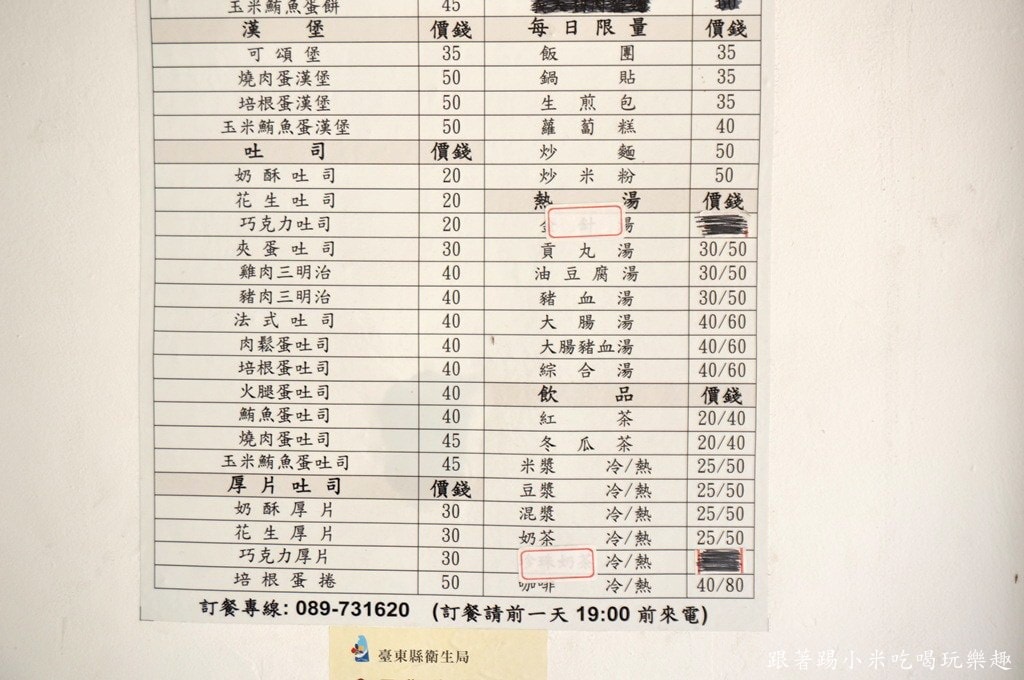 玉米鮪魚蛋餅 45
漢堡 價錢
可頌堡 35
燒肉蛋漢堡 50
培根蛋漢堡 50
玉米鮪魚蛋漢堡 50
吐司 價錢
奶酥吐司 20
花生吐司 20
巧克力吐司 20
夾蛋吐司 30
雞肉三明治 40
豬肉三明治 40
法式吐司 40
肉鬆蛋吐司 40
培根蛋吐司 40
火腿蛋吐司 40
鮪魚蛋吐司 40
燒肉蛋吐司 45
玉米鮪魚蛋吐司 45
厚片吐司 價錢
奶酥厚片 30
花生厚片 30
巧克力厚片 30
培根蛋捲 50
每日限量 價錢
飯團 35
鍋貼 35
生煎包 35
蘿蔔糕 40
炒麵 50
炒米粉 50
熱湯 價錢
金針湯
貢丸湯 30/50
油豆腐湯 30/50
豬血湯 30/50
大腸湯 40/60
大腸豬血湯 40/60
綜合湯 40/60
飲品 價錢
紅茶 20/40
冬瓜茶 20/40
米漿 冷/熱 25/50
豆漿 冷/熱 25/50
混漿 冷/熱 25/50
奶茶 冷/熱 25/50
珍珠奶茶 冷/熱
咖啡 冷/熱 40/80
訂餐專線: 089-731620 (訂餐請前一天 19:00 前來電)
臺東縣衛生局
跟著踢小米吃喝玩樂趣